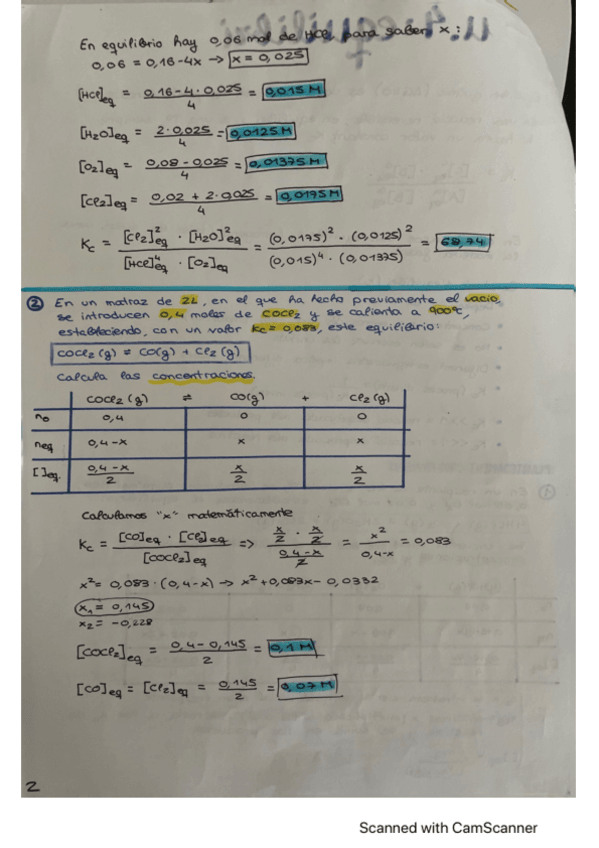 En equilibrio hay 0,06 mol de HCl, para saber x:
0,06 = 0,16-4x → x = 0,025
[HCl]eq = 0,16-4·0,025 / 4 = 0,015 M
[H₂O]eq = 2·0,025 / 4 = 0,0125 M
[O₂]eq = 0,08-0,025 / 4 = 0,01375 M
[Cl₂]eq = 0,02 + 2·0,025 / 4 = 0,0175 M
Kc = [Cl₂]²eq · [H₂O]²eq / [HCl]⁴eq · [O₂]eq = (0,0175)² · (0,0125)² / (0,015)⁴ · (0,01375) = 68,74
② En un matraz de 2L, en el que ha hecho previamente el vacío,
se introducen 0,4 moles de COCl₂ y se calienta a 900ºC,
estableciendo, con un valor Kc = 0,083, este equilibrio:
COCl₂ (g) ⇌ CO(g) + Cl₂ (g)
Calcula las concentraciones.
COCl₂ (g) ⇌ CO(g) + Cl₂ (g)
n₀ 0,4 0 0
neq 0,4-x x x
[ ]eq. 0,4-x / 2 x / 2 x / 2
Calculamos "x" matemáticamente
Kc = [CO]eq · [Cl₂]eq / [COCl₂]eq => x/2 · x/2 / 0,4-x/2 = x² / 0,4-x = 0,083
x² = 0,083 · (0,4-x) → x² + 0,083x - 0,0332
x₁ = 0,145
x₂ = -0,228
[COCl₂]eq = 0,4-0,145 / 2 = 0,1 M
[CO]eq = [Cl₂]eq = 0,145 / 2 = 0,07 M
2
Scanned with CamScanner